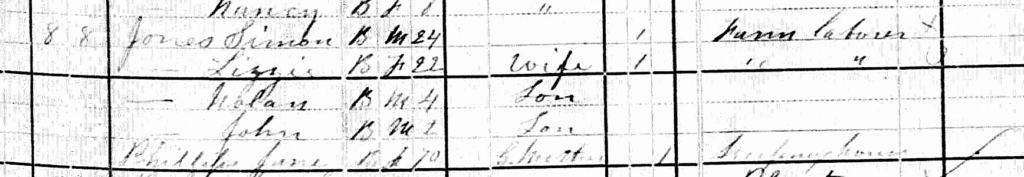 Nancy B F "
8 8 Jones Simon B M 24 1 Farm laborer
— Lizzie B F 22 Wife 1 " "
— Nolan B M 4 Son
— John B M 2 Son
Jane 70 1